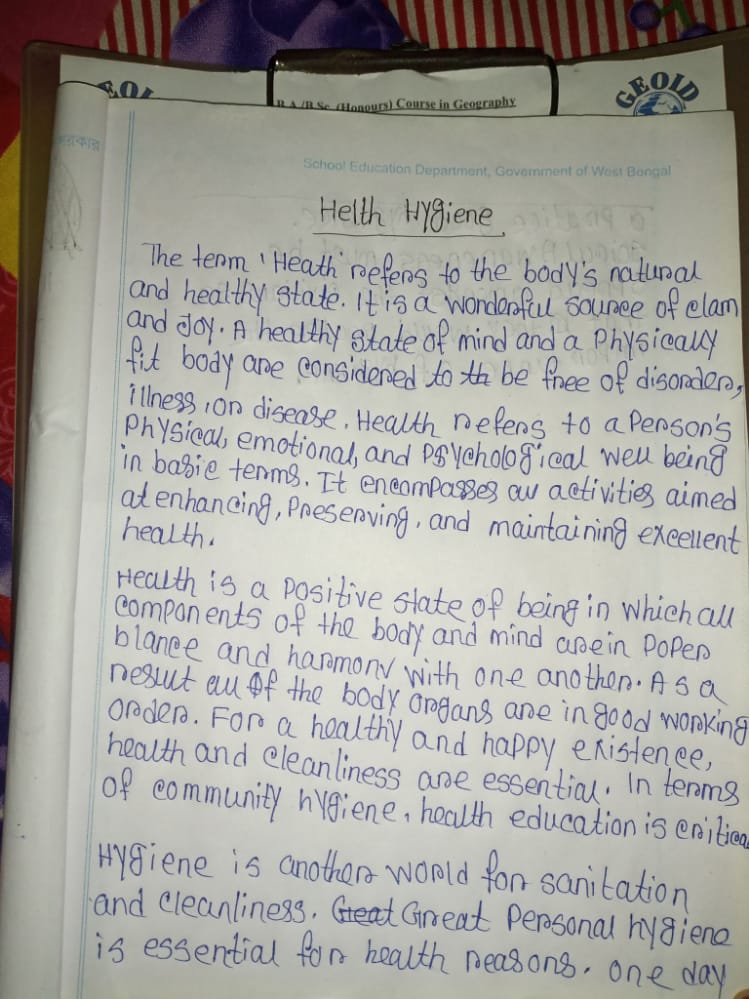 GEOID
B.A./B.Sc. (Honours) Course in Geography
সরকার
School Education Department, Government of West Bengal
Helth Hygiene
The term 'Heath' refers to the body's natural
and healthy state. It is a wonderful source of clam
and Joy. A healthy state of mind and a Physically
fit body are considered to th be free of disorders,
illness, or disease. Health refers to a Person's
Physical, emotional, and PSychological well being
in basic terms. It encompasses all activities aimed
at enhancing, Preserving, and maintaining excellent
health.
Health is a Positive state of being in which all
components of the body and mind are in Poper
blance and harmony with one another. As a
result all of the body organs are in good working
order. For a healthy and happy existence,
health and cleanliness are essential. In terms
of community hygiene, health education is critica
Hygiene is another world for sanitation
and cleanliness. Geat Great Personal hygiene
is essential for health reasons. one day